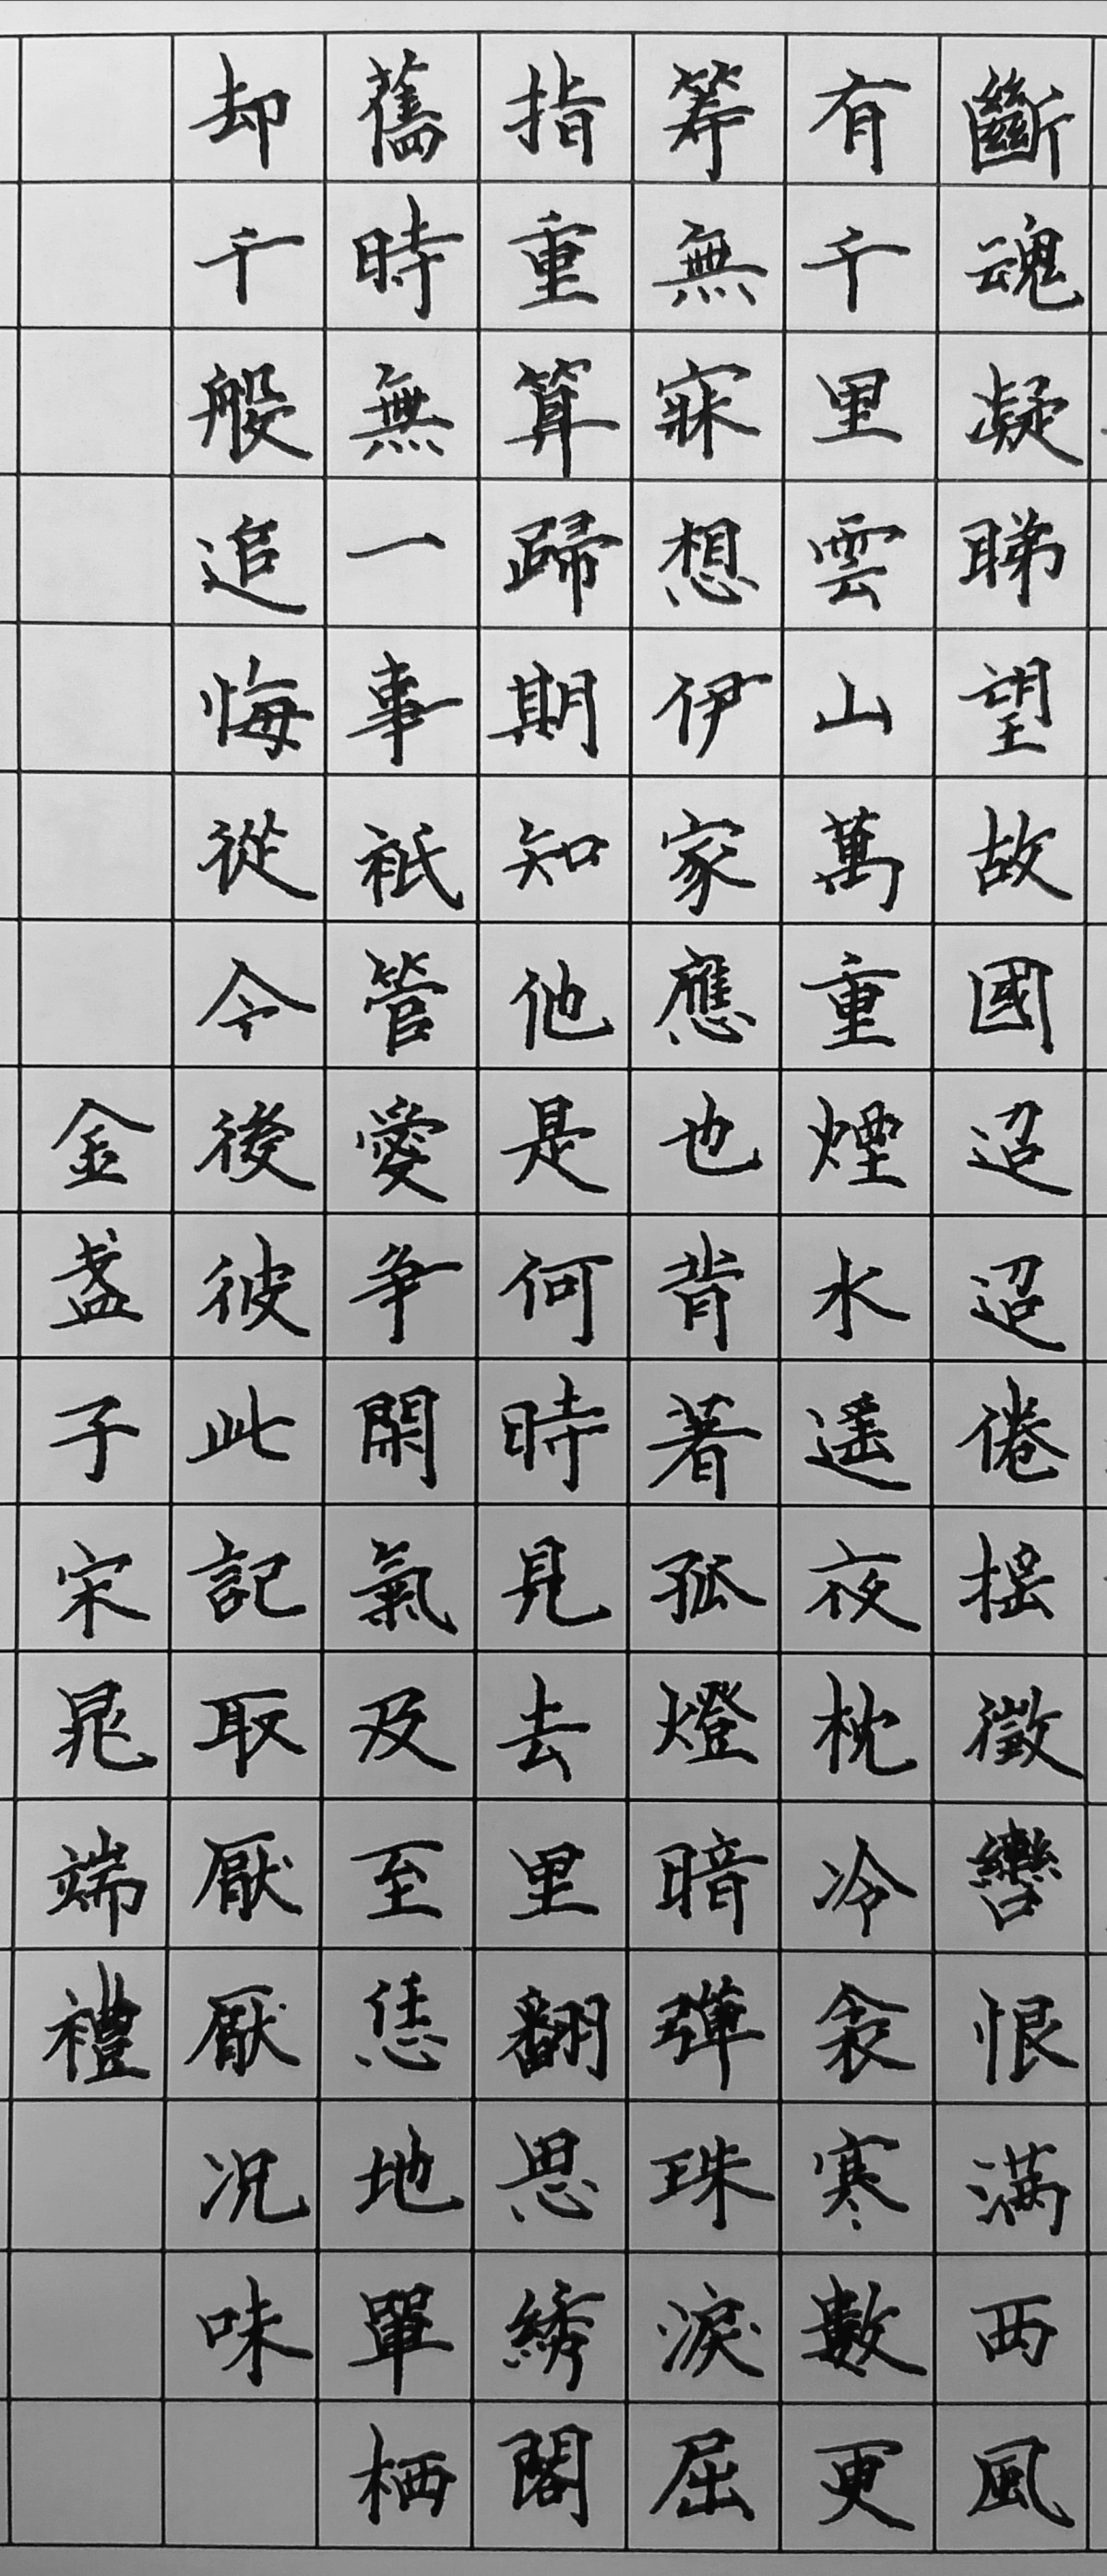 斷魂凝睇望故國迢迢倦搖徵轡恨满西風
有千里雲山萬重煙水遙夜枕冷衾寒數更
筹無寐想伊家應也背著孤燈暗彈珠淚屈
指重算歸期知他是何時見去里翻思綉閣
舊時無一事衹管愛争閑氣及至恁地單栖
却千般追悔從今後彼此記取厭厭况味
金盏子宋晁端禮